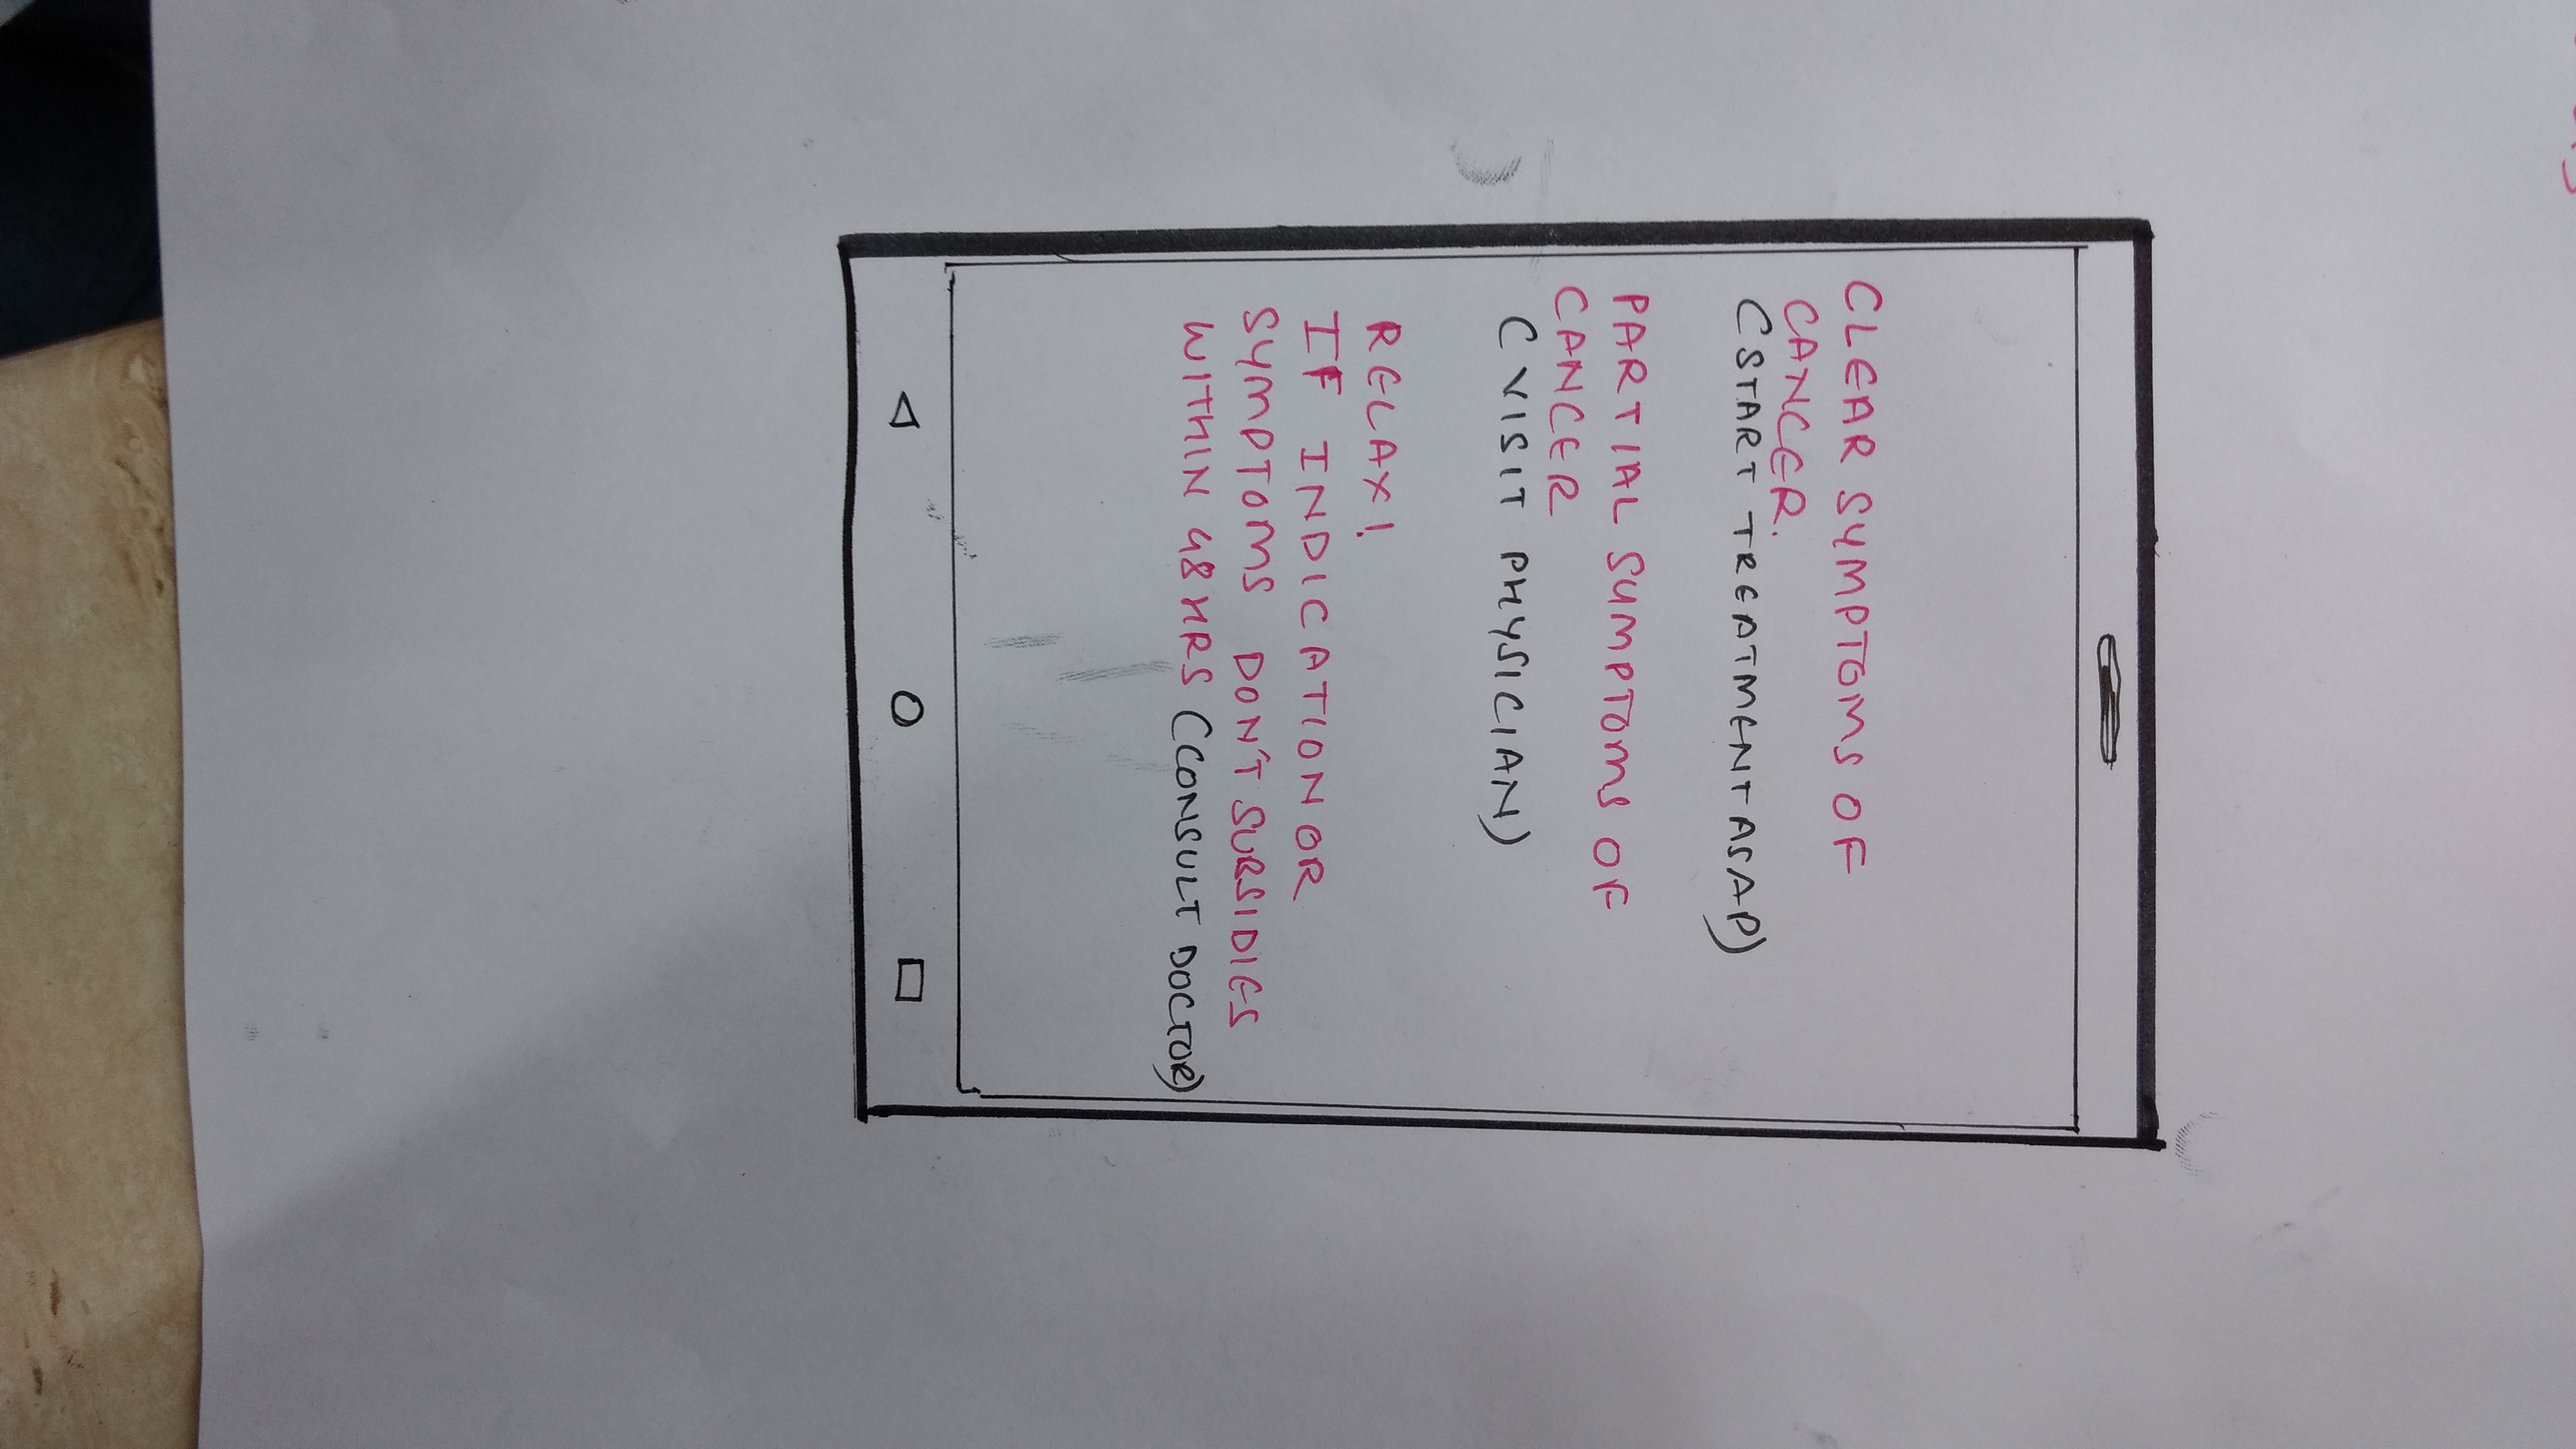 CLEAR SYMPTOMS OF
CANCER.
(START TREATMENT ASAP)
PARTIAL SYMPTOMS OF
CANCER
(VISIT PHYSICIAN)
RELAX!
IF INDICATION OR
SYMPTOMS DON'T SUBSIDIES
WITHIN 48 HRS (CONSULT DOCTOR)